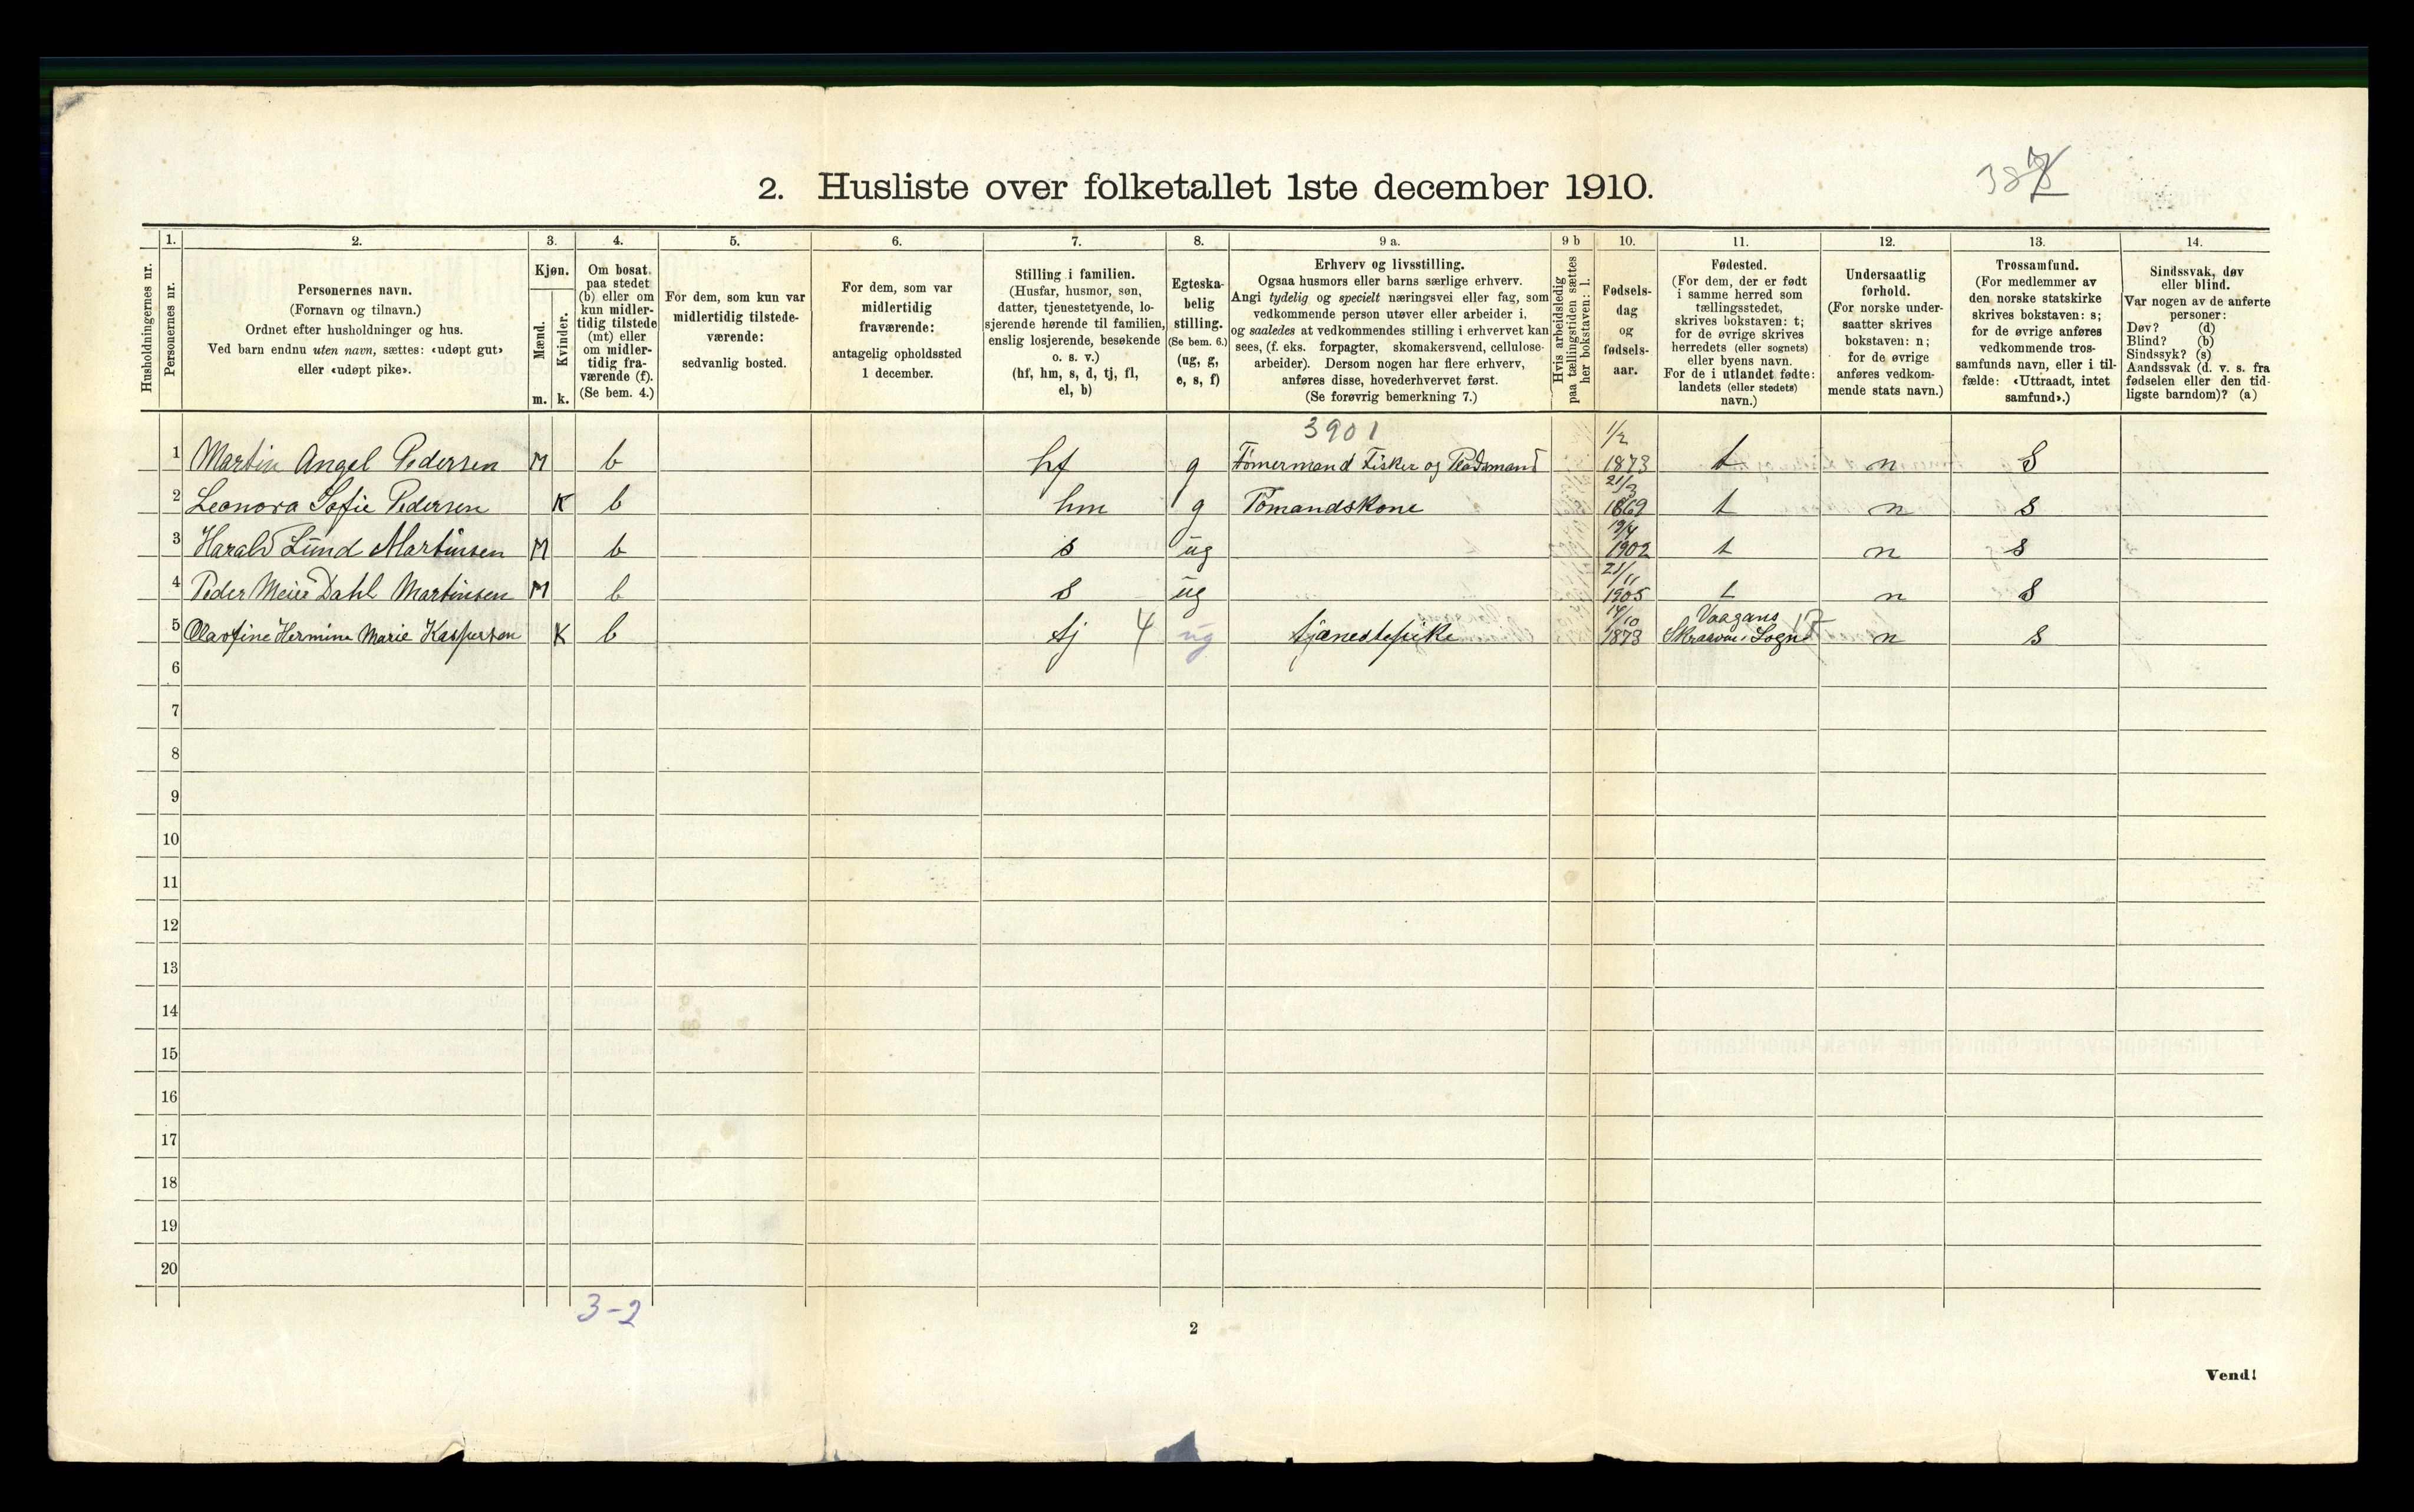 2. Husliste over folketallet 1ste december 1910.
387
Husholdningernes nr.
1.
Personernes nr.
2.
Personernes navn.
(Fornavn og tilnavn.)
Ordnet efter husholdninger og hus.
Ved barn endnu uten navn, sættes: «udøpt gut»
eller «udøpt pike».
3.
Kjøn.
Mænd.
Kvinder.
m. k.
4.
Om bosat
paa stedet
(b) eller om
kun midler-
tidig tilstede
(mt) eller
om midler-
tidig fra-
værende (f).
(Se bem. 4.)
5.
For dem, som kun var
midlertidig tilstede-
værende:
sedvanlig bosted.
6.
For dem, som var
midlertidig
fraværende:
antagelig opholdssted
1 december.
7.
Stilling i familien.
(Husfar, husmor, søn,
datter, tjenestetyende, lo-
sjerende hørende til familien,
enslig losjerende, besøkende
o. s. v.)
(hf, hm, s, d, tj, fl,
el, b)
8.
Egteska-
belig
stilling.
(Se bem. 6.)
(ug, g,
e, s, f)
9 a.
Erhverv og livsstilling.
Ogsaa husmors eller barns særlige erhverv.
Angi tydelig og specielt næringsvei eller fag, som
vedkommende person utøver eller arbeider i,
og saaledes at vedkommendes stilling i erhvervet kan
sees, (f. eks. forpagter, skomakersvend, cellulose-
arbeider). Dersom nogen har flere erhverv,
anføres disse, hovederhvervet først.
(Se forøvrig bemerkning 7.)
9 b
Hvis arbeidsledig
paa tællingstiden sættes
her bokstaven: l.
10.
Fødsels-
dag
og
fødsels-
aar.
11.
Fødested.
(For dem, der er født
i samme herred som
tællingsstedet,
skrives bokstaven: t;
for de øvrige skrives
herredets (eller sognets)
eller byens navn.
For de i utlandet fødte:
landets (eller stedets)
navn.)
12.
Undersaatlig
forhold.
(For norske under-
saatter skrives
bokstaven: n;
for de øvrige
anføres vedkom-
mende stats navn.)
13.
Trossamfund.
(For medlemmer av
den norske statskirke
skrives bokstaven: s;
for de øvrige anføres
vedkommende tros-
samfunds navn, eller i til-
fælde: «Uttraadt, intet
samfund».)
14.
Sindssvak, døv
eller blind.
Var nogen av de anførte
personer:
Døv? (d)
Blind? (b)
Sindssyk? (s)
Aandssvak (d. v. s. fra
fødselen eller den tid-
ligste barndom)? (a)
3901
1 Martin Angel Pedersen M b hf g Tømermand Fisker og Pladsmand 1/2 1873 t n S
2 Leonora Sofie Pedersen K b hm g Tømandskone 21/3 1869 t n s
3 Harald Lund Martinsen M b s ug 19/4 1902 t n s
4 Peder Meier Dahl Martinsen M b s ug 21/11 1905 t n S
5 Olavfine Hermine Marie Kaspersen K b tj 4 ug tjænestepike 14/10 1873 Vaagans Skraaven Sogn n s
6
7
8
9
10
11
12
13
14
15
16
17
18
19
20
3-2
2
Vend!